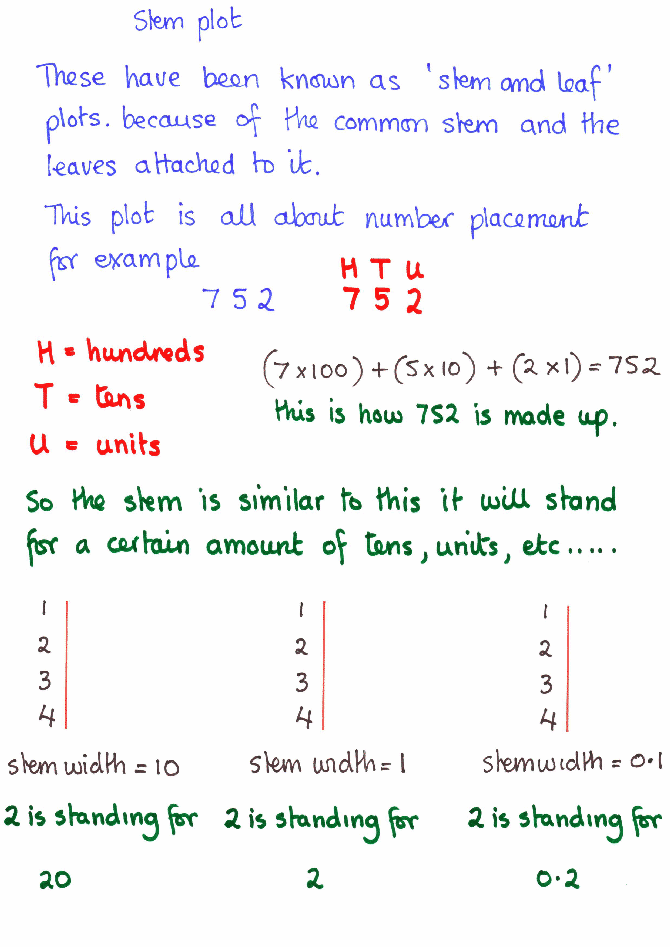 Stem plot
These have been known as 'stem and leaf'
plots. because of the common stem and the
leaves attached to it.
This plot is all about number placement
for example
H T U
7 5 2 7 5 2
H = hundreds
(7 x 100) + (5 x 10) + (2 x 1) = 752
T = tens
this is how 752 is made up.
U = units
So the stem is similar to this it will stand
for a certain amount of tens, units, etc.....
1 1 1
2 2 2
3 3 3
4 4 4
stem width = 10 stem width = 1 stem width = 0.1
2 is standing for 2 is standing for 2 is standing for
20 2 0.2